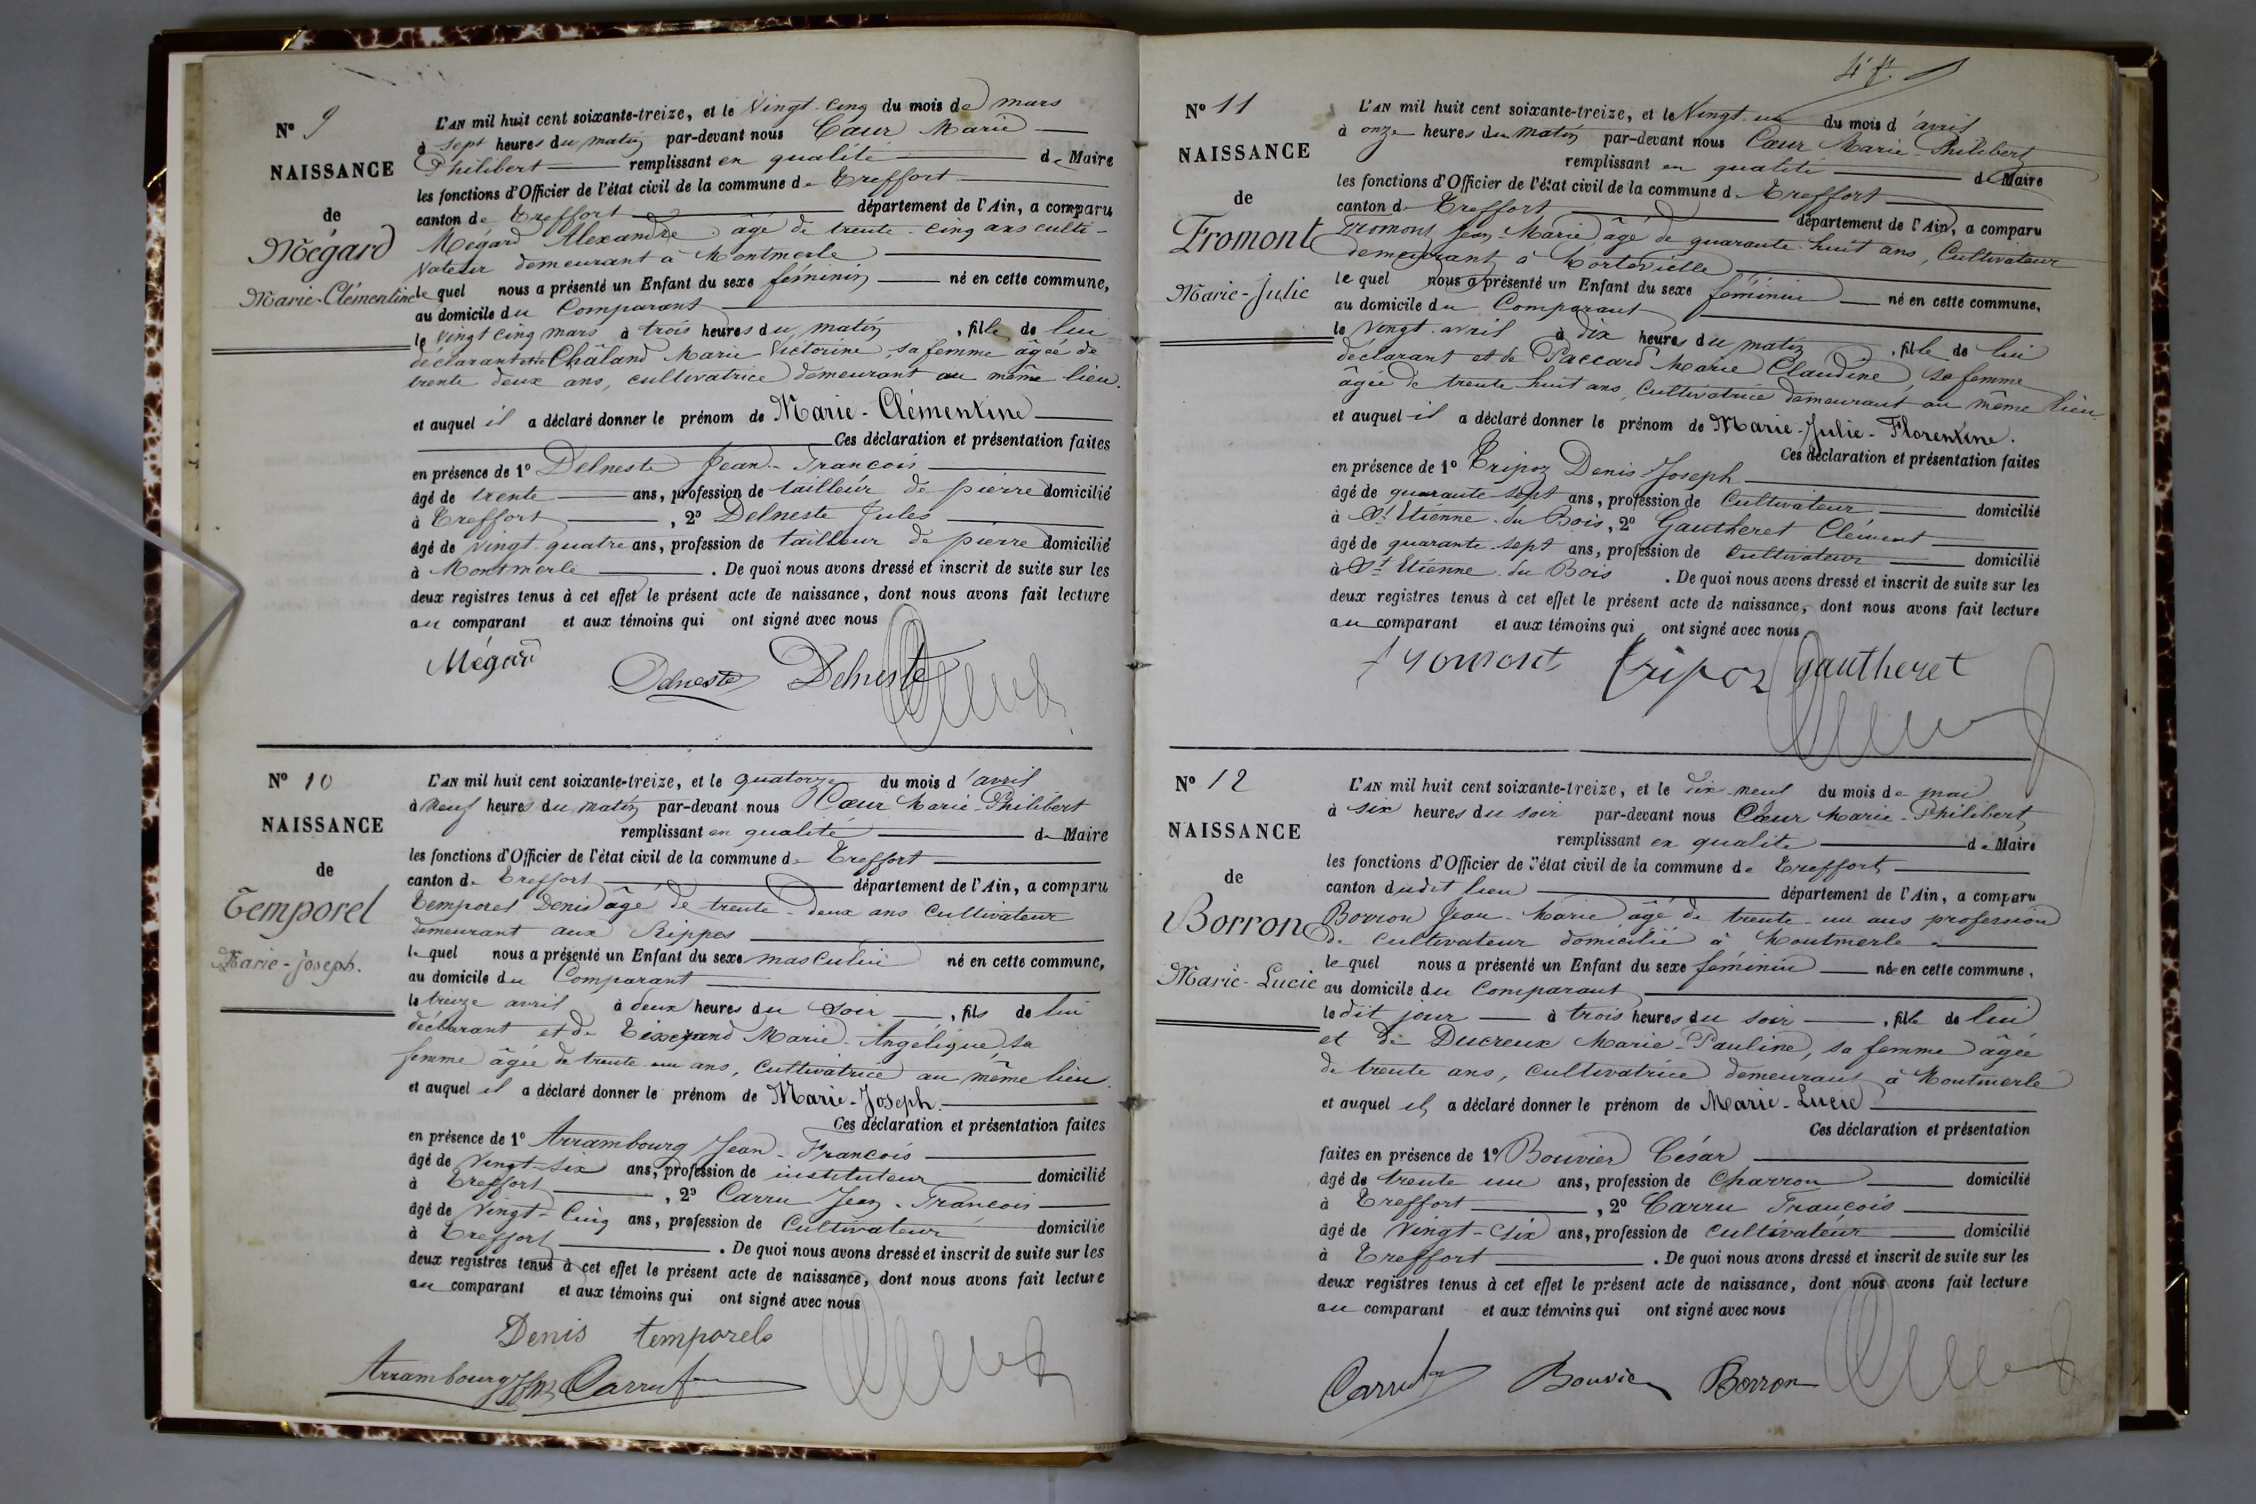 N° 9
NAISSANCE
de
Mégard
Marie-Clémentine
L'AN mil huit cent soixante-treize, et le Vingt-cinq du mois de mars
à sept heures du matin par-devant nous Cœur Marie
Philibert remplissant en qualité de Maire
les fonctions d'Officier de l'état civil de la commune de Treffort
canton de Treffort département de l'Ain, a comparu
Mégard Alexandre âgé de trente-cinq ans culti-
vateur demeurant à Montmerle
lequel nous a présenté un Enfant du sexe féminin né en cette commune,
au domicile du Comparant
le vingt cinq mars à trois heures du matin, fille de lui
déclarant et de Châland Marie Victorine, sa femme âgée de
trente deux ans, cultivatrice demeurant au même lieu.
et auquel il a déclaré donner le prénom de Marie-Clémentine
Ces déclaration et présentation faites
en présence de 1° Delneste Jean-François
âgé de trente ans, profession de tailleur de pierre domicilié
à Treffort, 2° Delneste Jules
âgé de vingt-quatre ans, profession de tailleur de pierre domicilié
à Montmerle. De quoi nous avons dressé et inscrit de suite sur les
deux registres tenus à cet effet le présent acte de naissance, dont nous avons fait lecture
au comparant et aux témoins qui ont signé avec nous
Mégard Delneste Delneste
N° 10
NAISSANCE
de
Temporel
Marie-Joseph.
L'AN mil huit cent soixante-treize, et le quatorze du mois d'avril
à neuf heures du matin par-devant nous Cœur Marie-Philibert
remplissant en qualité de Maire
les fonctions d'Officier de l'état civil de la commune de Treffort
canton de Treffort département de l'Ain, a comparu
Temporel Denis âgé de trente-deux ans Cultivateur
demeurant aux Rippes
lequel nous a présenté un Enfant du sexe masculin né en cette commune,
au domicile du Comparant
le treize avril à deux heures du soir, fils de lui
déclarant et de Tisserand Marie-Angélique, sa
femme âgée de trente un ans, Cultivatrice au même lieu.
et auquel il a déclaré donner le prénom de Marie-Joseph.
Ces déclaration et présentation faites
en présence de 1° Arrambourg Jean-François
âgé de Vingt-six ans, profession de instituteur domicilié
à Treffort, 2° Carru Jean-François
âgé de Vingt-Cinq ans, profession de Cultivateur domicilié
à Treffort. De quoi nous avons dressé et inscrit de suite sur les
deux registres tenus à cet effet le présent acte de naissance, dont nous avons fait lecture
au comparant et aux témoins qui ont signé avec nous
Denis temporel
Arrambourg Carru
N° 11
NAISSANCE
de
Fromont
Marie-Julie
L'AN mil huit cent soixante-treize, et le Vingt-un du mois d'avril
à onze heures du matin par-devant nous Cœur Marie-Philibert
remplissant en qualité de Maire
les fonctions d'Officier de l'état civil de la commune de Treffort
canton de Treffort département de l'Ain, a comparu
Fromont Jean-Marie âgé de quarante-huit ans, Cultivateur
demeurant à Mortevielle
lequel nous a présenté un Enfant du sexe féminin né en cette commune,
au domicile du Comparant
le Vingt avril à dix heures du matin, fille de lui
déclarant et de Paccard Marie Claudine, sa femme
âgée de trente huit ans, Cultivatrice demeurant au même lieu.
et auquel il a déclaré donner le prénom de Marie-Julie-Florentine.
Ces déclaration et présentation faites
en présence de 1° Tripoz Denis Joseph
âgé de quarante-sept ans, profession de Cultivateur domicilié
à St Etienne-du Bois, 2° Gautheret Clément
âgé de quarante-sept ans, profession de Cultivateur domicilié
à St Etienne-du Bois. De quoi nous avons dressé et inscrit de suite sur les
deux registres tenus à cet effet le présent acte de naissance, dont nous avons fait lecture
au comparant et aux témoins qui ont signé avec nous
fromont tripoz gautheret
N° 12
NAISSANCE
de
Borron
Marie-Lucie
L'AN mil huit cent soixante-treize, et le dix-neuf du mois de mai
à six heures du soir par-devant nous Cœur Marie-Philibert,
remplissant en qualité de Maire
les fonctions d'Officier de l'état civil de la commune de Treffort
canton dudit lieu département de l'Ain, a comparu
Borron Jean-Marie âgé de trente-un ans profession
de cultivateur domicilié à Montmerle
lequel nous a présenté un Enfant du sexe féminin née en cette commune,
au domicile du Comparant
le dit jour à trois heures du soir, fille de lui
et de Ducreux Marie-Pauline, sa femme âgée
de trente ans, cultivatrice demeurant à Montmerle
et auquel il a déclaré donner le prénom de Marie-Lucie
Ces déclaration et présentation
faites en présence de 1° Bouvier César
âgé de trente un ans, profession de Charron domicilié
à Treffort, 2° Carru François
âgé de Vingt-six ans, profession de Cultivateur domicilié
à Treffort. De quoi nous avons dressé et inscrit de suite sur les
deux registres tenus à cet effet le présent acte de naissance, dont nous avons fait lecture
au comparant et aux témoins qui ont signé avec nous
Carru Bouvier Borron